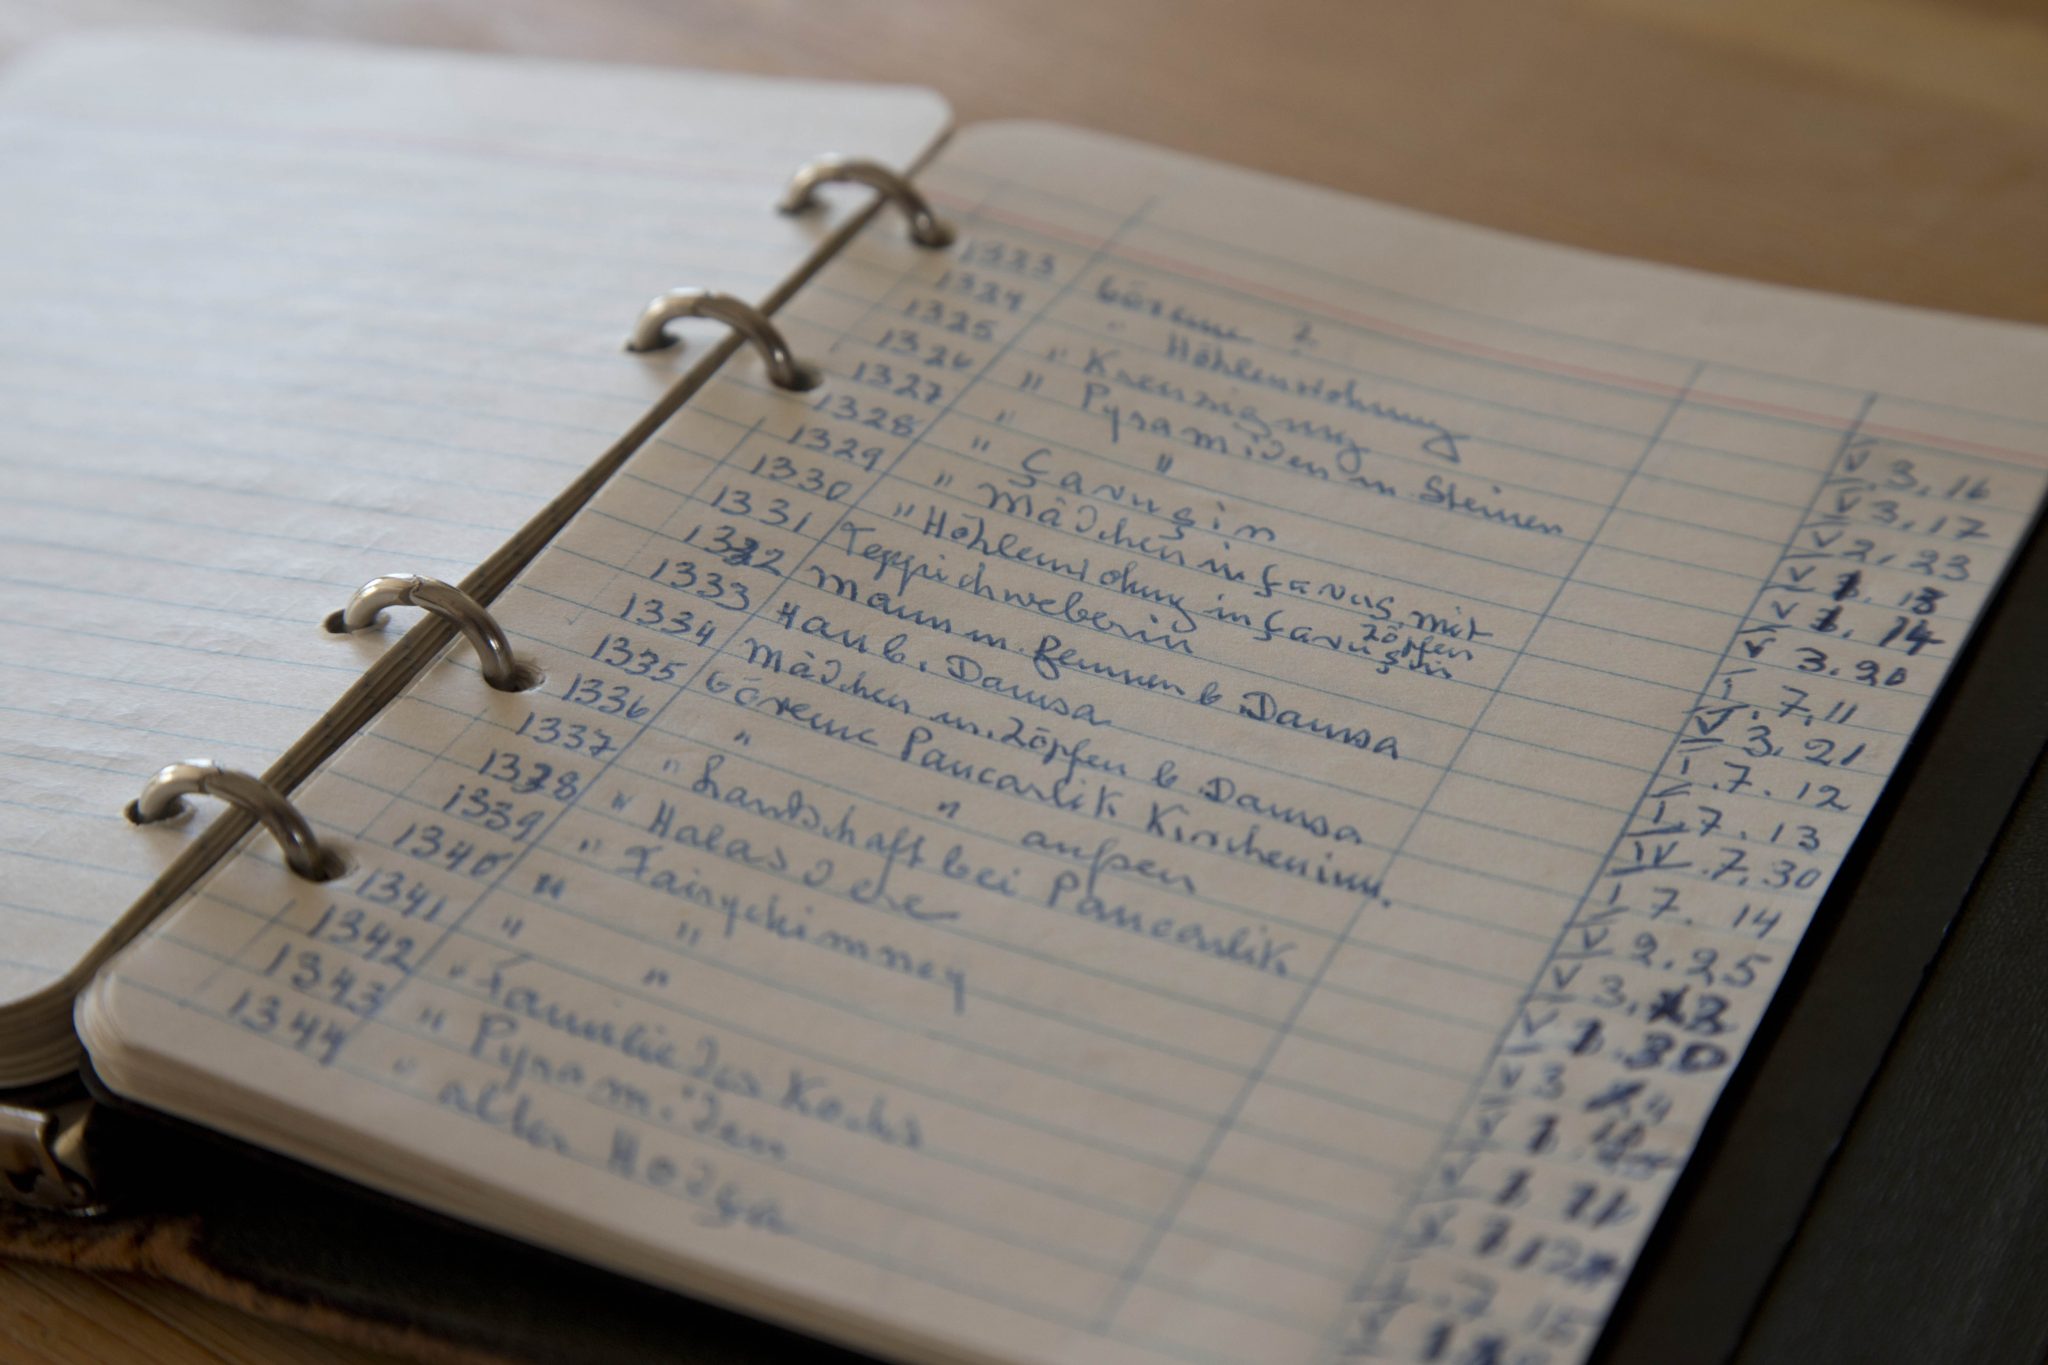 1323 Göreme 2 V 3.16
1324 " Höhlenwohnung V 3.17
1325 " Kreuzigung V 2.23
1326 " Pyramiden m. Steinen V 1.13
1327 " " V 1.14
1328 " Çavuşin V 3.20
1329 " Mädchen in Çavuş. mit Zöpfen I.7.11
1330 " Höhlenwohnung in Çavuşin V 3.21
1331 Teppichweberin I.7.12
1332 Mann m. Bennen b Damsa I.7.13
1333 Hau b. Damsa IV.7.30
1334 Mädchen m. Zöpfen b Damsa I 7.14
1335 Göreme Pancarlik Kircheninn. V 2.25
1336 " " außen V 3.
1337 " Landschaft bei Pancarlik V 1.30
1338 " Halasdere V 3
1339 " Fairychimney V 1
1340 " " V 1 11
1341 " " 1 12
1342 " Familie des Kochs
1343 " Pyramiden
1344 " alter Hodga